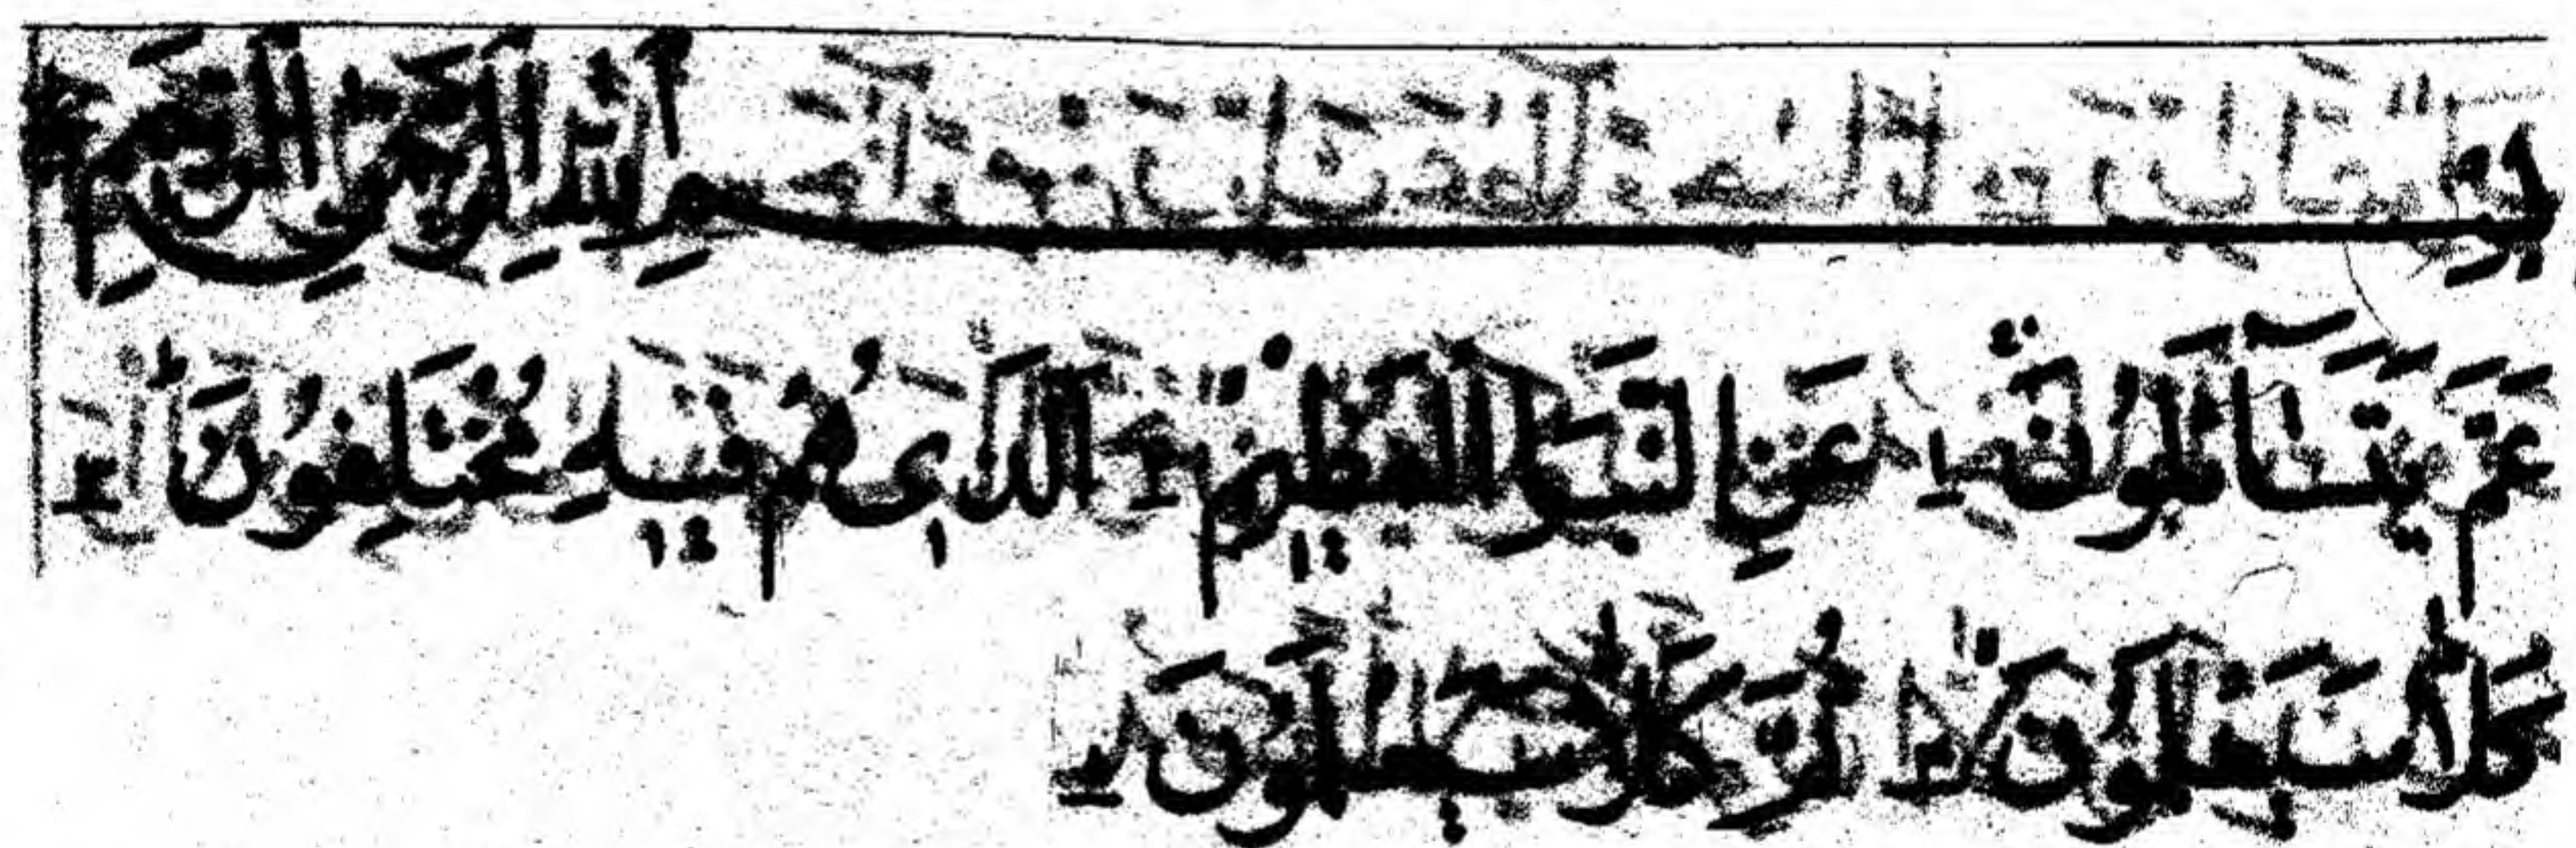 بِسْمِ اللهِ الرَّحْمٰنِ الرَّحِيْمِ
عَمَّ يَتَسَآءَلُوْنَ عَنِ النَّبَاِ الْعَظِيْمِ الَّذِىْ هُمْ فِيْهِ مُخْتَلِفُوْنَ
كَلَّا سَيَعْلَمُوْنَ ثُمَّ كَلَّا سَيَعْلَمُوْنَ